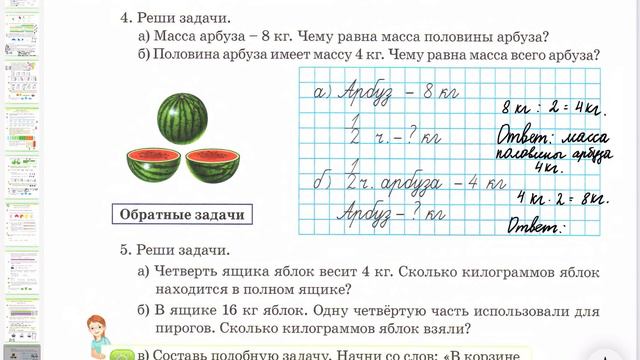 4. Реши задачи.
а) Масса арбуза – 8 кг. Чему равна масса половины арбуза?
б) Половина арбуза имеет массу 4 кг. Чему равна масса всего арбуза?
а) Арбуз – 8 кг
1
2 ч. – ? кг
1
б) 2 ч. арбуза – 4 кг
Арбуз – ? кг
8 кг : 2 = 4 кг.
Ответ: масса
половины арбуза
4 кг.
4 кг · 2 = 8 кг.
Ответ:
Обратные задачи
5. Реши задачи.
а) Четверть ящика яблок весит 4 кг. Сколько килограммов яблок
находится в полном ящике?
б) В ящике 16 кг яблок. Одну четвёртую часть использовали для
пирогов. Сколько килограммов яблок взяли?
в) Составь подобную задачу. Начни со слов: «В корзине